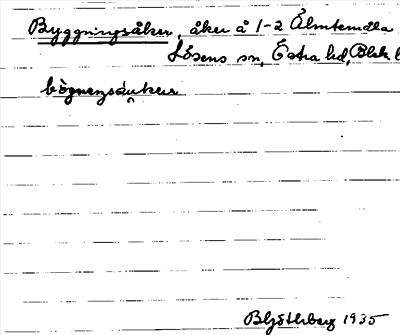 Byggningsåker, åker å 1-2 Älmtemåla
Lösens sn, Östra hd, Blek l
bögnengsåuker
B Hjöthberg 1935